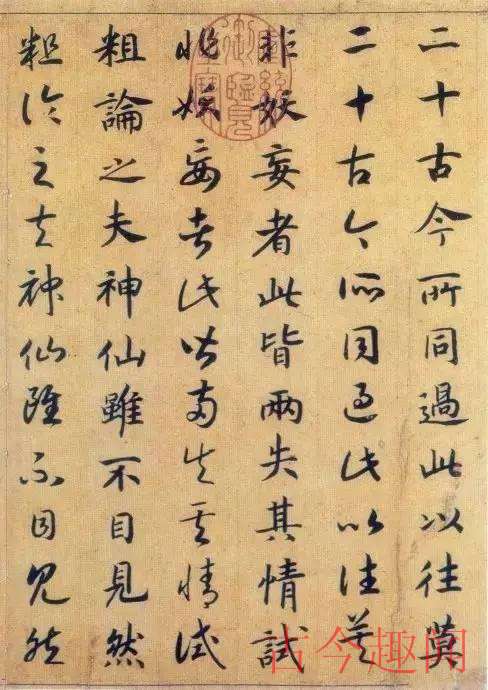 二十古今所同過此以往莫
二十古今所同過此以往莫
非妖妄者此皆兩失其情試
非妖妄者此皆兩失其情試
粗論之夫神仙雖不目見然
粗論之夫神仙雖不目見然
御覽之寶
古今趣闻